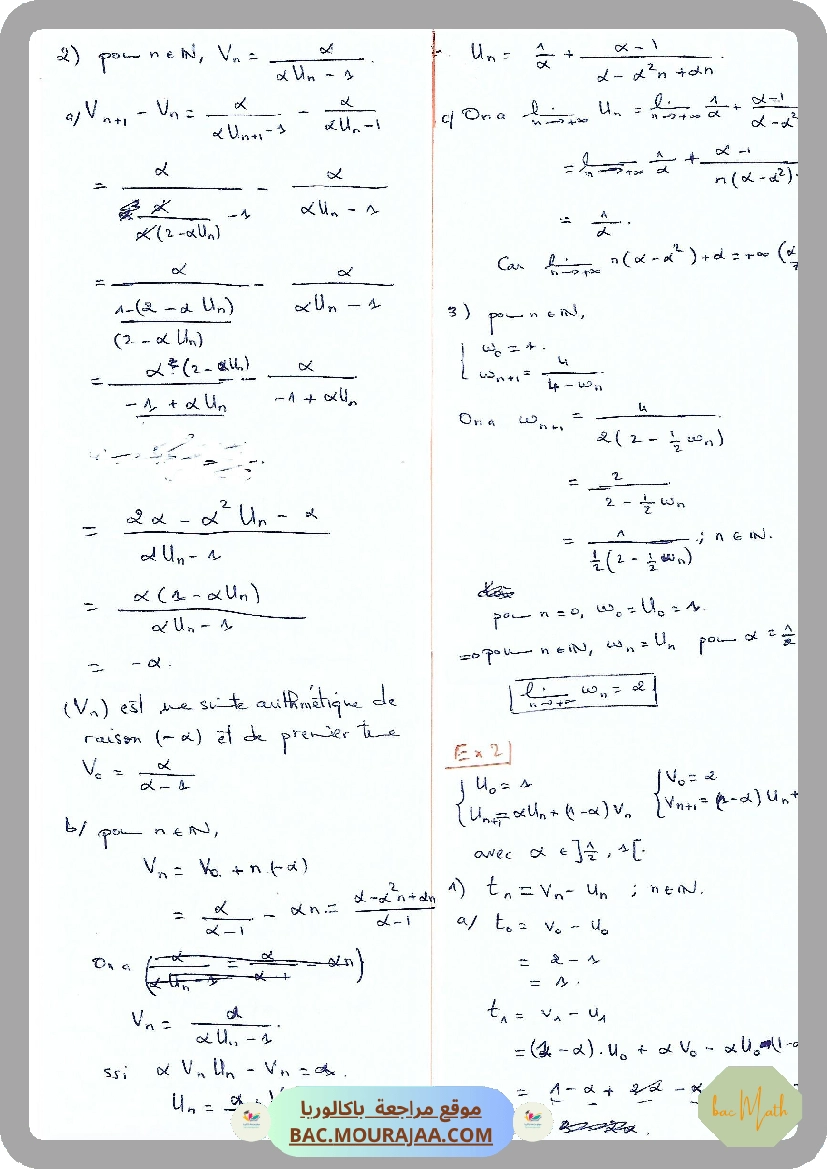 2) pour n ∈ IN, Vn = α / (αUn - 1).
a/ Vn+1 - Vn = α / (αUn+1 - 1) - α / (αUn - 1)
= α / (α / (α(2-αUn)) - 1) - α / (αUn - 1)
= α / ((1-(2-αUn)) / (2-αUn)) - α / (αUn - 1)
= α(2-αUn) / (-1 + αUn) - α / (-1 + αUn)
= (2α - α²Un - α) / (αUn - 1)
= α(1 - αUn) / (αUn - 1)
= -α.
(Vn) est une suite arithmétique de
raison (-α) et de premier terme
V0 = α / (α - 1)
b/ pour n ∈ IN,
Vn = V0 + n.(-α)
= α / (α-1) - αn = (α-α²n+αn) / (α-1)
On a
Vn = α / (αUn - 1).
ssi α Vn Un - Vn = α.
Un = α + V
Un = 1/α + (α-1) / (α - α²n + αn).
c/ On a lim n→+∞ Un = lim n→+∞ 1/α + (α-1) / (α-α²
= lim n→+∞ 1/α + (α-1) / (n(α-α²)+
= 1/α.
Car lim n→+∞ n(α-α²)+α = +∞ (α
3) pour n ∈ IN,
{ ω0 = 1.
ωn+1 = 4 / (4-ωn)
On a ωn+1 = 4 / (2(2 - ½ωn))
= 2 / (2 - ½ωn)
= 1 / (½(2 - ½ωn)) ; n ∈ IN.
pour n=0, ω0 = U0 = 1.
⇒ pour n ∈ IN, ωn = Un pour α = ½
lim n→+∞ ωn = 2
Ex2
{ U0 = 1 { V0 = 2
Un+1 = αUn + (1-α)Vn Vn+1 = (1-α)Un +
avec α ∈ ]½, 1[.
1) tn = Vn - Un ; n ∈ IN.
a/ t0 = V0 - U0
= 2 - 1
= 1.
t1 = V1 - U1
= (1-α).U0 + αV0 - αU0 - (1-α
= 1-α + 2α - α
موقع مراجعة باكالوريا
BAC.MOURAJAA.COM
bacMath